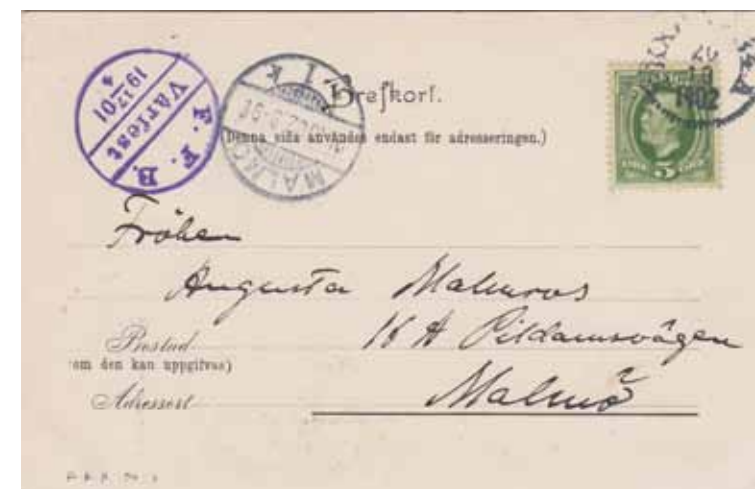 F. F. B.
Vårfest
19 17/4 01
MALMÖ
1902
Brefkort.
(Denna sida användes endast för adresseringen.)
5
Fröken
Augusta Malmros
16 A Pildamsvägen
Postad
om den kan uppgifvas)
Malmö
Adressort